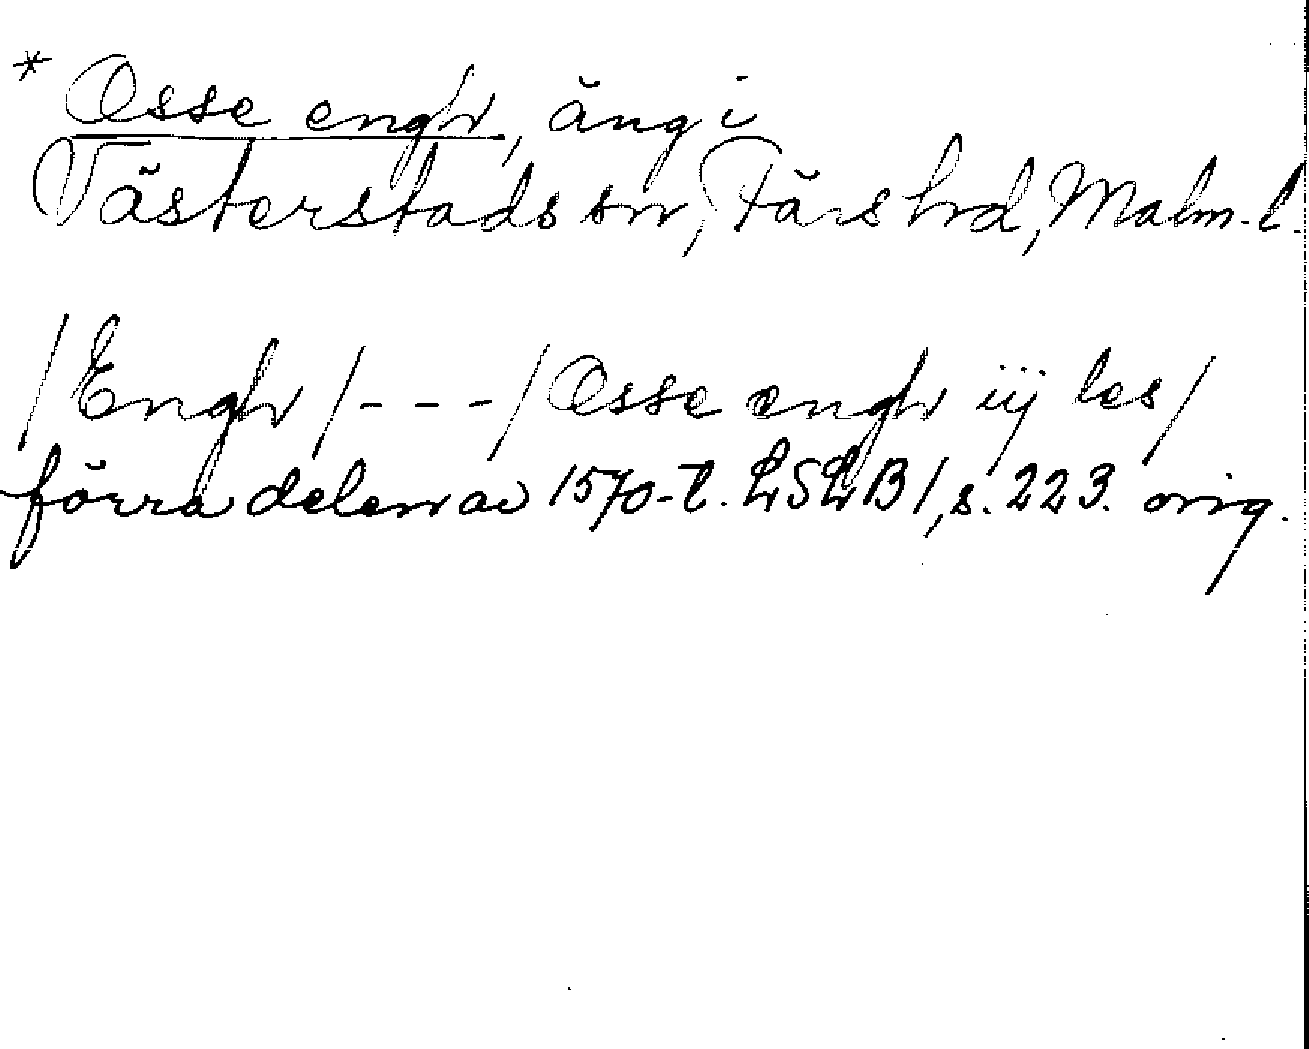 * Osse engh, äng i
Västerstads sn, Färs hrd, Malm. l.
/Engh/---/Osse engh iij les/
förra delen av 1570-t. LSLB1, s. 223. orig.